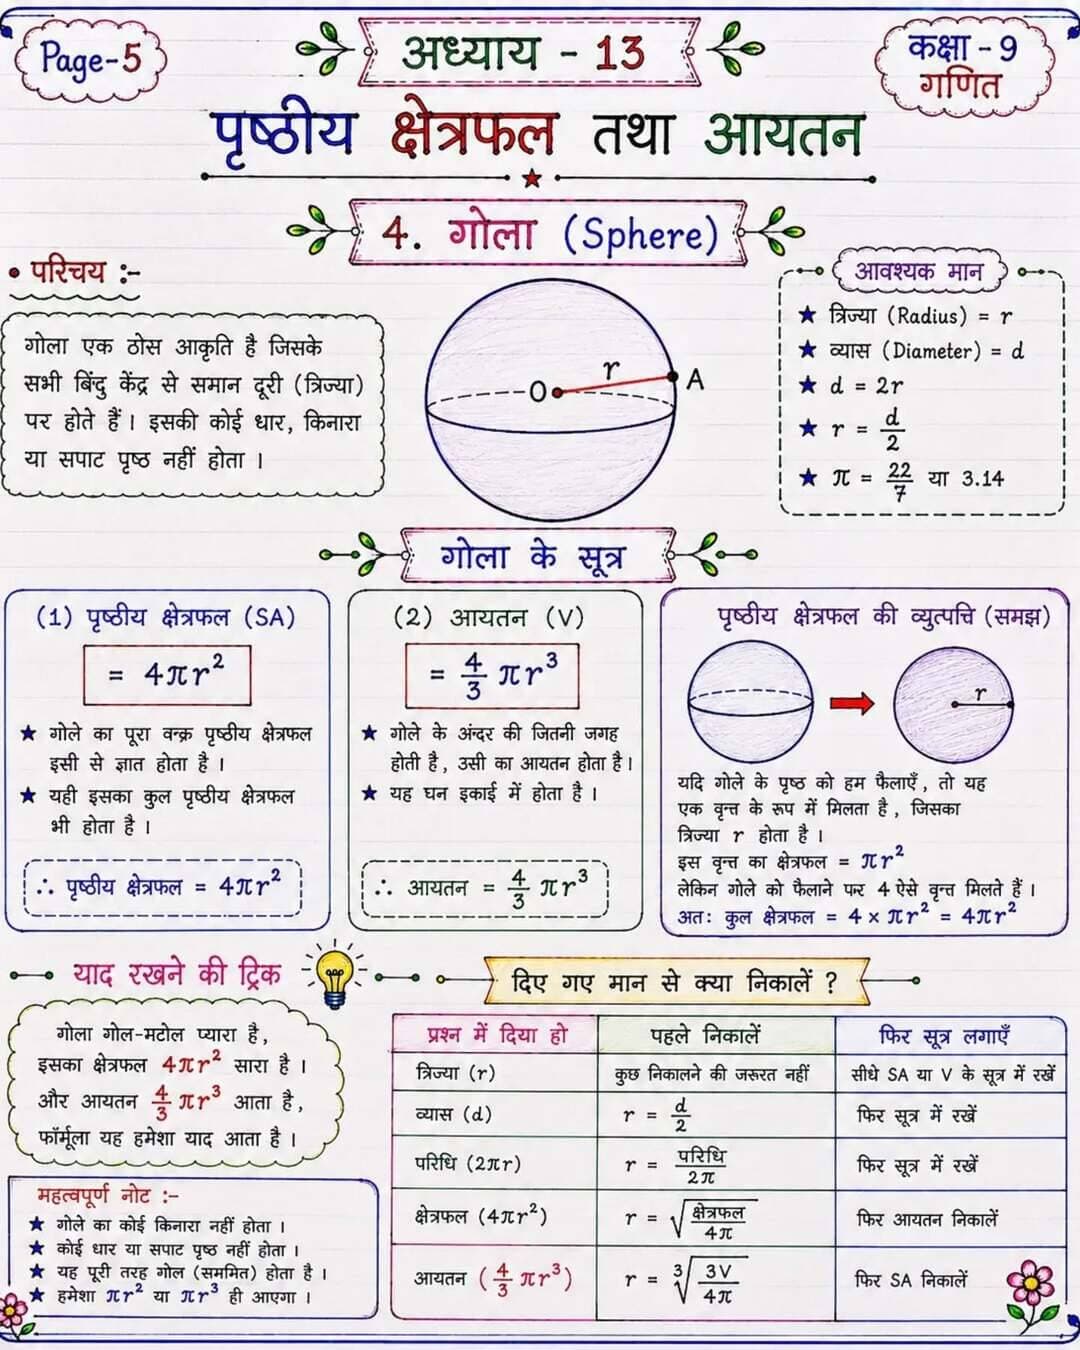 Page-5
अध्याय - 13
कक्षा - 9
गणित
पृष्ठीय क्षेत्रफल तथा आयतन
4. गोला (Sphere)
• परिचय :-
गोला एक ठोस आकृति है जिसके
सभी बिंदु केंद्र से समान दूरी (त्रिज्या)
पर होते हैं। इसकी कोई धार, किनारा
या सपाट पृष्ठ नहीं होता ।
O
r
A
आवश्यक मान
★ त्रिज्या (Radius) = r
★ व्यास (Diameter) = d
★ d = 2r
★ r = d/2
★ π = 22/7 या 3.14
गोला के सूत्र
(1) पृष्ठीय क्षेत्रफल (SA)
= 4πr²
★ गोले का पूरा वन्क्र पृष्ठीय क्षेत्रफल
इसी से ज्ञात होता है ।
★ यही इसका कुल पृष्ठीय क्षेत्रफल
भी होता है ।
∴ पृष्ठीय क्षेत्रफल = 4πr²
(2) आयतन (V)
= 4/3 πr³
★ गोले के अंदर की जितनी जगह
होती है, उसी का आयतन होता है।
★ यह घन इकाई में होता है ।
∴ आयतन = 4/3 πr³
पृष्ठीय क्षेत्रफल की व्युत्पत्ति (समझ)
r
यदि गोले के पृष्ठ को हम फैलाएँ, तो यह
एक वृन्त के रूप में मिलता है, जिसका
त्रिज्या r होता है ।
इस वृन्त का क्षेत्रफल = πr²
लेकिन गोले को फैलाने पर 4 ऐसे वृन्त मिलते हैं ।
अतः कुल क्षेत्रफल = 4 × πr² = 4πr²
याद रखने की ट्रिक
गोला गोल-मटोल प्यारा है,
इसका क्षेत्रफल 4πr² सारा है ।
और आयतन 4/3 πr³ आता है,
फॉर्मूला यह हमेशा याद आता है ।
महत्वपूर्ण नोट :-
★ गोले का कोई किनारा नहीं होता ।
★ कोई धार या सपाट पृष्ठ नहीं होता ।
★ यह पूरी तरह गोल (सममित) होता है ।
★ हमेशा πr² या πr³ ही आएगा ।
दिए गए मान से क्या निकालें ?
प्रश्न में दिया हो पहले निकालें फिर सूत्र लगाएँ
त्रिज्या (r) कुछ निकालने की जरूरत नहीं सीधे SA या V के सूत्र में रखें
व्यास (d) r = d/2 फिर सूत्र में रखें
परिधि (2πr) r = परिधि/2π फिर सूत्र में रखें
क्षेत्रफल (4πr²) r = √(क्षेत्रफल/4π) फिर आयतन निकालें
आयतन (4/3 πr³) r = ³√(3V/4π) फिर SA निकालें